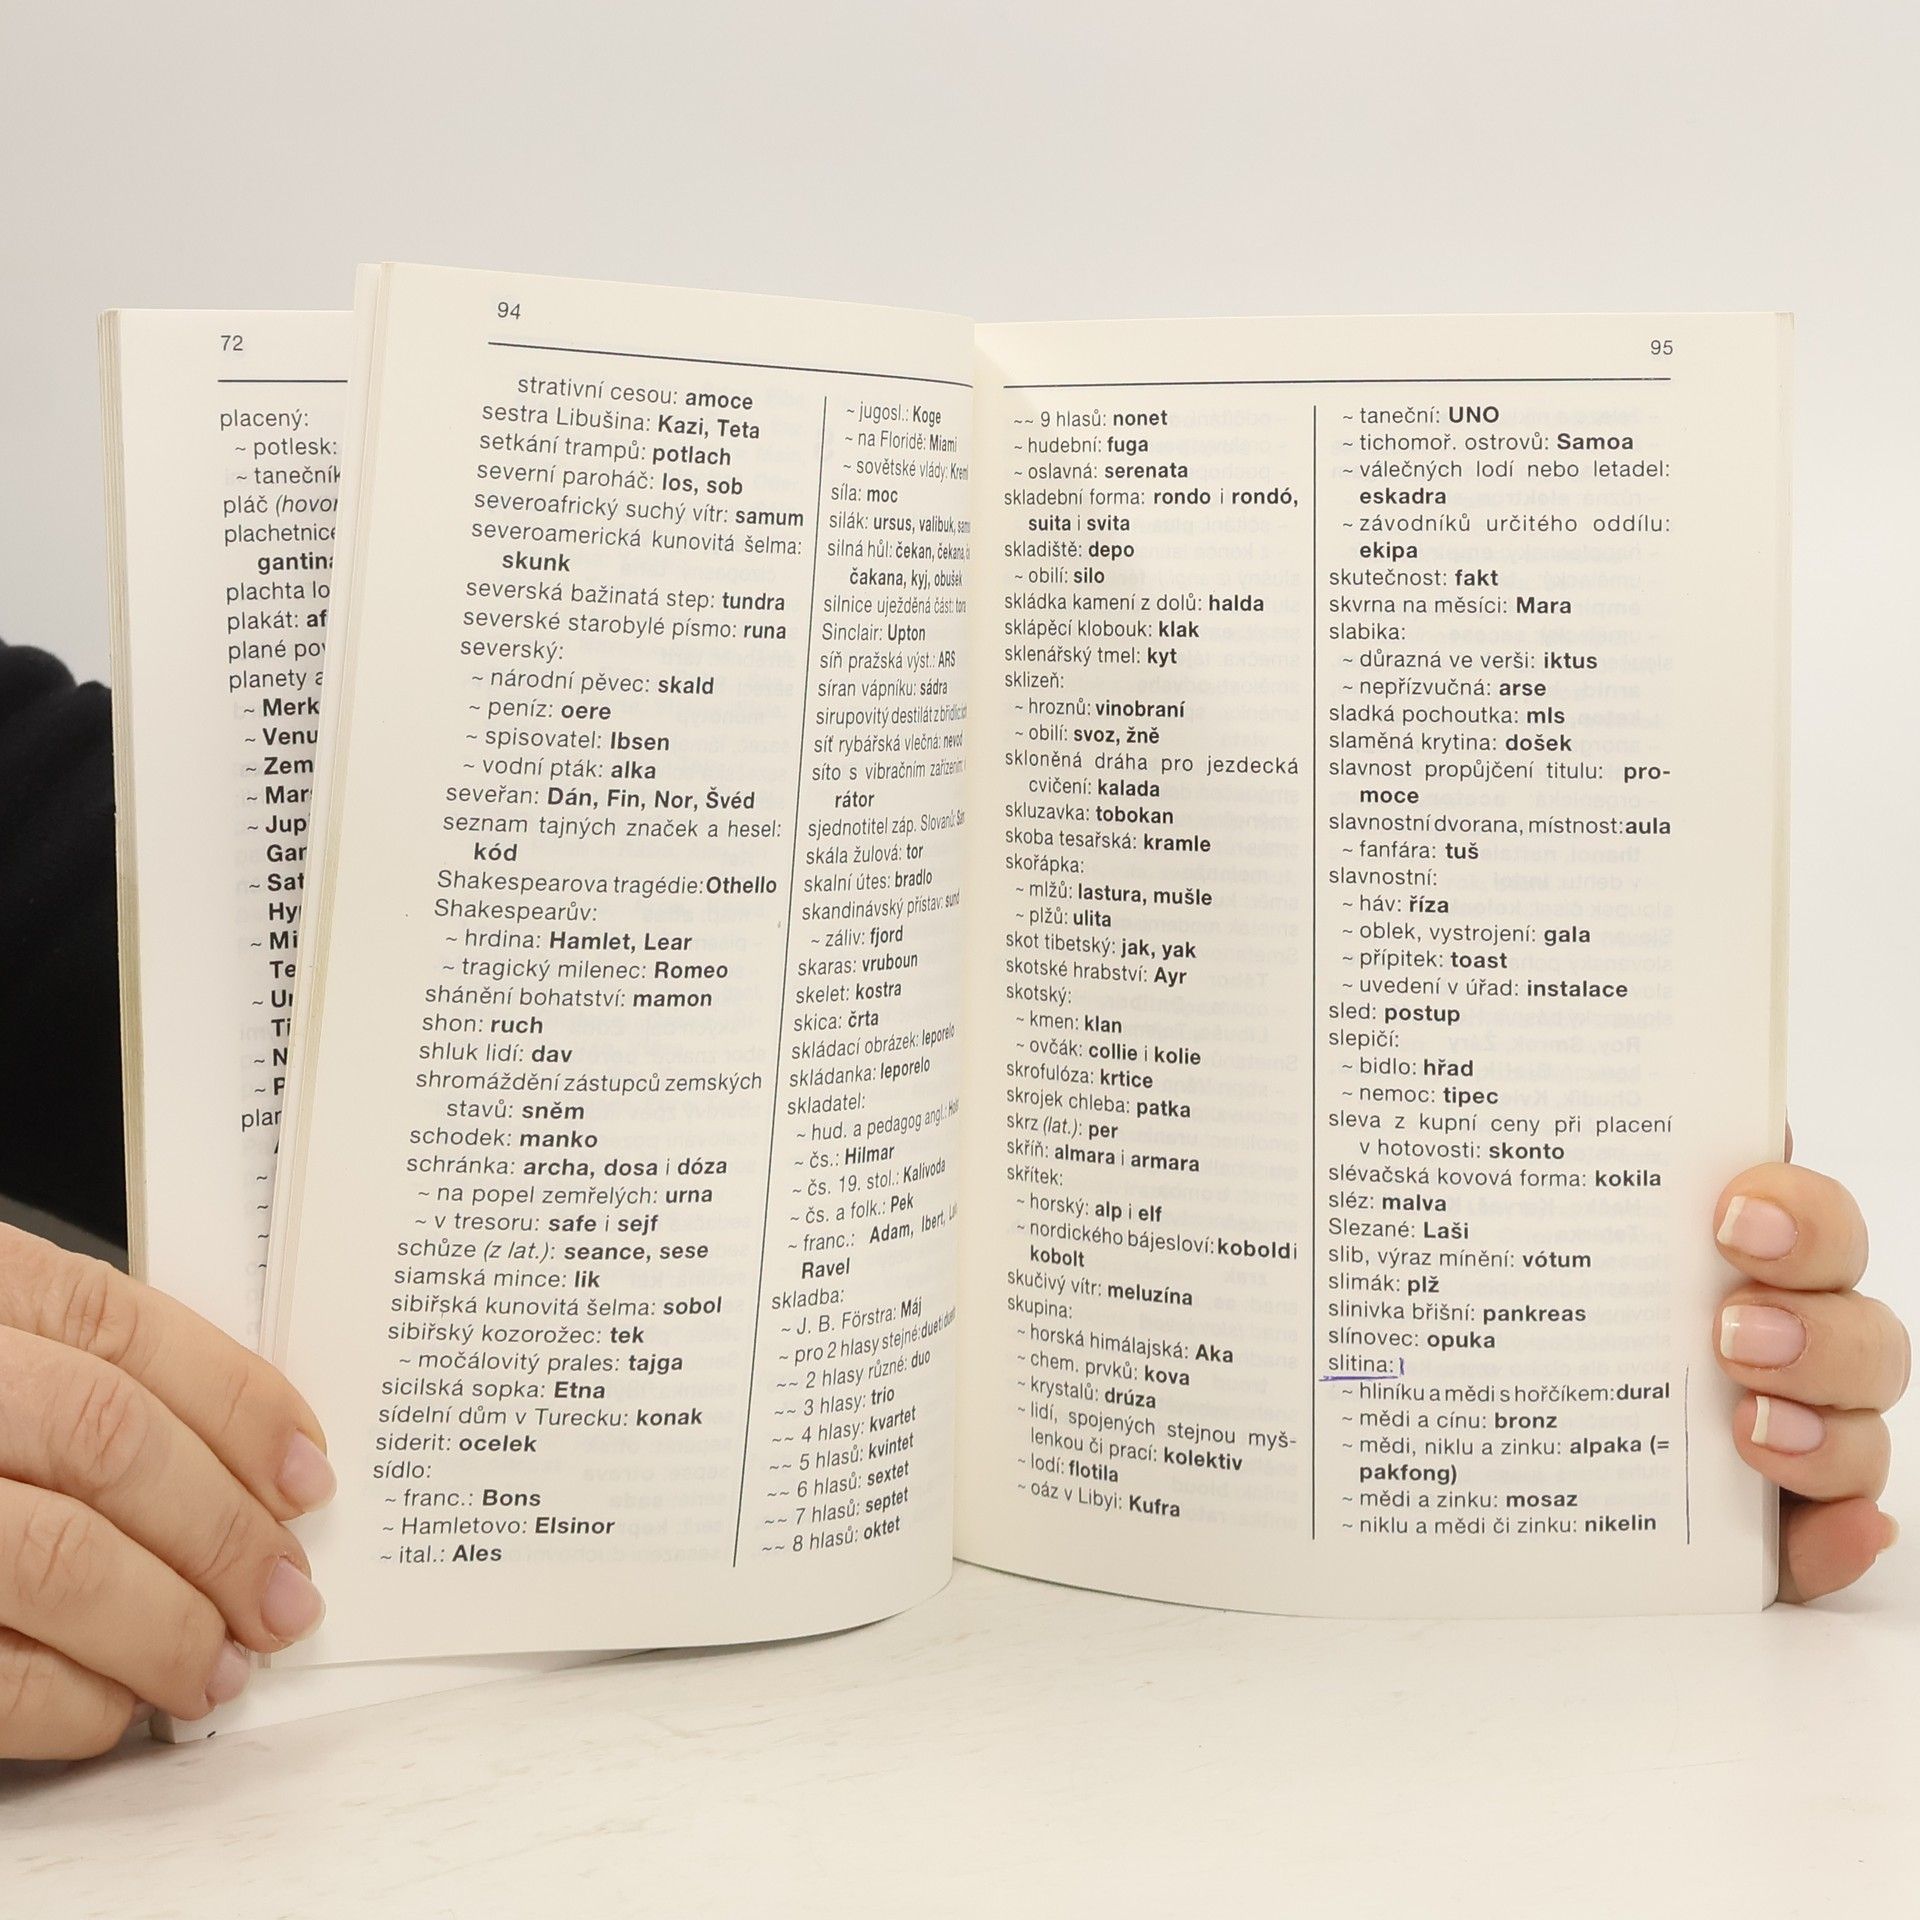 72
placený:
~ potlesk:
~ tanečník
pláč (hovor
plachetnice
gantina
plachta lo
plakát: af
plané pov
planety a
~ Merk
~ Venu
~ Zem
~ Mars
~ Jupi
Gan
~ Sat
Hyp
~ Mi
Te
~ Ur
Ti
~ N
~ P
plan
94
strativní cesou: amoce
sestra Libušina: Kazi, Teta
setkání trampů: potlach
severní paroháč: los, sob
severoafrický suchý vítr: samum
severoamerická kunovitá šelma:
skunk
severská bažinatá step: tundra
severské starobylé písmo: runa
severský:
~ národní pěvec: skald
~ peníz: oere
~ spisovatel: Ibsen
~ vodní pták: alka
seveřan: Dán, Fin, Nor, Švéd
seznam tajných značek a hesel:
kód
Shakespearova tragédie: Othello
Shakespearův:
~ hrdina: Hamlet, Lear
~ tragický milenec: Romeo
shánění bohatství: mamon
shon: ruch
shluk lidí: dav
shromáždění zástupců zemských
stavů: sněm
schodek: manko
schránka: archa, dosa i dóza
~ na popel zemřelých: urna
~ v tresoru: safe i sejf
schůze (z lat.): seance, sese
siamská mince: lik
sibiřská kunovitá šelma: sobol
sibiřský kozorožec: tek
~ močálovitý prales: tajga
sicilská sopka: Etna
sídelní dům v Turecku: konak
siderit: ocelek
sídlo:
~ franc.: Bons
~ Hamletovo: Elsinor
~ ital.: Ales
~ jugosl.: Koge
~ na Floridě: Miami
~ sovětské vlády: Kreml
síla: moc
silák: ursus, valibuk,
silná hůl: čekan, čekana,
čakana, kyj, obušek
silnice uježděná část:
Sinclair: Upton
síň pražská výst.: ARS
síran vápníku: sádra
sirupovitý destilát z břidlic:
síť rybářská vlečná: nevod
síto s vibračním zařízením:
rátor
sjednotitel záp. Slovanů:
skála žulová: tor
skalní útes: bradlo
skandinávský přístav: sund
~ záliv: fjord
skaras: vruboun
skelet: kostra
skica: črta
skládací obrázek: leporelo
skládanka: leporelo
skladatel:
~ hud. a pedagog angl.:
~ čs.: Hilmar
~ čs. 19. stol.: Kalivoda
~ čs. a folk.: Pek
~ franc.: Adam, Ibert,
Ravel
skladba:
~ J. B. Förstra: Máj
~ pro 2 hlasy stejné: duet i
~~ 2 hlasy různé: duo
~~ 3 hlasy: trio
~~ 4 hlasy: kvartet
~~ 5 hlasů: kvintet
~~ 6 hlasů: sextet
~~ 7 hlasů: septet
~~ 8 hlasů: oktet
95
~~ 9 hlasů: nonet
~ hudební: fuga
~ oslavná: serenata
skladební forma: rondo i rondó,
suita i svita
skladiště: depo
~ obilí: silo
skládka kamení z dolů: halda
sklápěcí klobouk: klak
sklenářský tmel: kyt
sklizeň:
~ hroznů: vinobraní
~ obilí: svoz, žně
skloněná dráha pro jezdecká
cvičení: kalada
skluzavka: tobokan
skoba tesařská: kramle
skořápka:
~ mlžů: lastura, mušle
~ plžů: ulita
skot tibetský: jak, yak
skotské hrabství: Ayr
skotský:
~ kmen: klan
~ ovčák: collie i kolie
skrofulóza: krtice
skrojek chleba: patka
skrz (lat.): per
skříň: almara i armara
skřítek:
~ horský: alp i elf
~ nordického bájesloví: kobold i
kobolt
skučivý vítr: meluzína
skupina:
~ horská himálajská: Aka
~ chem. prvků: kova
~ krystalů: drúza
~ lidí, spojených stejnou myš-
lenkou či prací: kolektiv
~ lodí: flotila
~ oáz v Libyi: Kufra
~ taneční: UNO
~ tichomoř. ostrovů: Samoa
~ válečných lodí nebo letadel:
eskadra
~ závodníků určitého oddílu:
ekipa
skutečnost: fakt
skvrna na měsíci: Mara
slabika:
~ důrazná ve verši: iktus
~ nepřízvučná: arse
sladká pochoutka: mls
slaměná krytina: došek
slavnost propůjčení titulu: pro-
moce
slavnostní dvorana, místnost: aula
~ fanfára: tuš
slavnostní:
~ háv: říza
~ oblek, vystrojení: gala
~ přípitek: toast
~ uvedení v úřad: instalace
sled: postup
slepičí:
~ bidlo: hřad
~ nemoc: tipec
sleva z kupní ceny při placení
v hotovosti: skonto
slévačská kovová forma: kokila
sléz: malva
Slezané: Laši
slib, výraz mínění: vótum
slimák: plž
slinivka břišní: pankreas
slínovec: opuka
slitina:
~ hliníku a mědi s hořčíkem: dural
~ mědi a cínu: bronz
~ mědi, niklu a zinku: alpaka (=
pakfong)
~ mědi a zinku: mosaz
~ niklu a mědi či zinku: nikelin